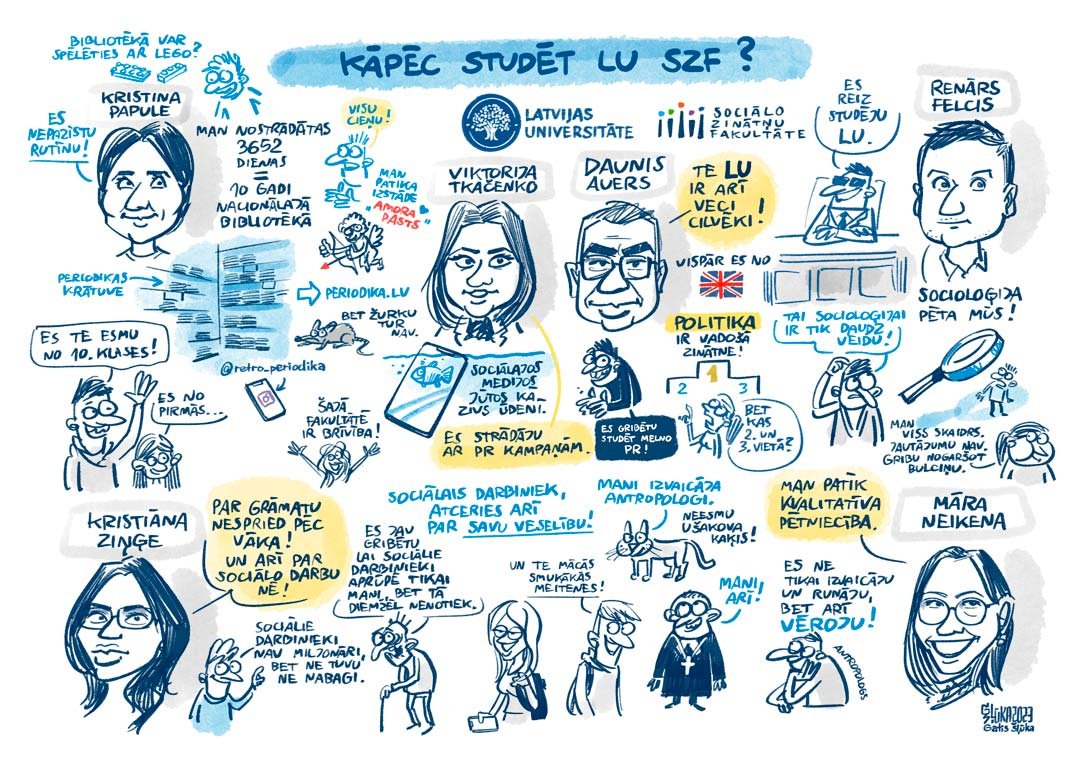 KĀPĒC STUDĒT LU SZF?
BIBLIOTĒKĀ VAR
SPĒLĒTIES AR LEGO?
KRISTINA
PAPULE
ES
NEPAZĪSTU
RUTĪNU!
MAN NOSTRĀDĀTAS
3652
DIENAS
=
10 GADI
NACIONĀLAJĀ
BIBLIOTĒKĀ
VISU
CIEŅU!
MAN
PATIKA
IZSTĀDE
"AMORA
PASTS"
LATVIJAS
UNIVERSITĀTE
SOCIĀLO
ZINĀTŅU
FAKULTĀTE
VIKTORIJA
TKAČENKO
DAUNIS
AUERS
TE LU
IR ARĪ
VECI
CILVĒKI!
VISPĀR ES NO
ES
REIZ
STUDĒJU
LU.
RENĀRS
FELCIS
PERIODIKAS
KRĀTUVE
PERIODIKA.LV
BET ŽURKU
TUR
NAV.
@retro_periodika
ES TE ESMU
NO 10. KLASES!
ES NO
PIRMĀS...
ŠAJĀ
FAKULTĀTĒ
IR BRĪVĪBA!
SOCIĀLAJOS
MEDIJOS
JŪTOS KĀ
ZIVS ŪDENĪ.
ES STRĀDĀJU
AR PR KAMPAŅĀM.
POLITIKA
IR VADOŠĀ
ZINĀTNE!
2 1 3
ES GRIBĒTU
STUDĒT MELNO
PR!
BET
KAS
2. UN
3. VIETĀ?
TAI SOCIOLOĢIJAI
IR TIK DAUDZ
VEIDU!
SOCIOLOĢIJA
PĒTA MŪS!
MAN
VISS SKAIDRS.
JAUTĀJUMU NAV.
GRIBU NOGARŠOT
BULCIŅU.
KRISTIĀNA
ZIŅĢE
PAR GRĀMATU
NESPRIED PĒC
VĀKA!
UN ARĪ PAR
SOCIĀLO DARBU
NĒ!
SOCIĀLIE
DARBINIEKI
NAV MILJONĀRI,
BET NE TUVU
NE NABAGI.
SOCIĀLAIS DARBINIEK,
ATCERIES ARĪ
PAR SAVU VESELĪBU!
ES JAU
GRIBĒTU
LAI SOCIĀLIE
DARBINIEKI
APRŪPĒ TIKAI
MANI. BET TĀ
DIEMŽĒL NENOTIEK.
UN TE MĀCĀS
SMUKĀKĀS
MEITENES!
MANI IZVAICĀJA
ANTROPOLOGI.
NEESMU
UŠAKOVA
KAĶIS!
MANI
ARĪ!
MAN PATĪK
KVALITATĪVA
PĒTNIECĪBA.
ES NE
TIKAI IZVAICĀJU
UN RUNĀJU,
BET ARĪ
VĒROJU!
ANTROPOLOGS
MĀRA
NEIKENA
ŠĻŪKA2023
Gatis Šļūka